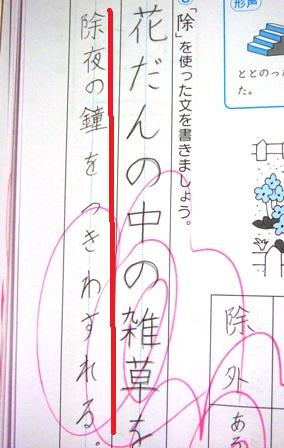 形声
ととのっ
た。
「除」を使った文を書きましょう。
花だんの中の雑草を
除夜の鐘をつきわすれる。
除外
ある